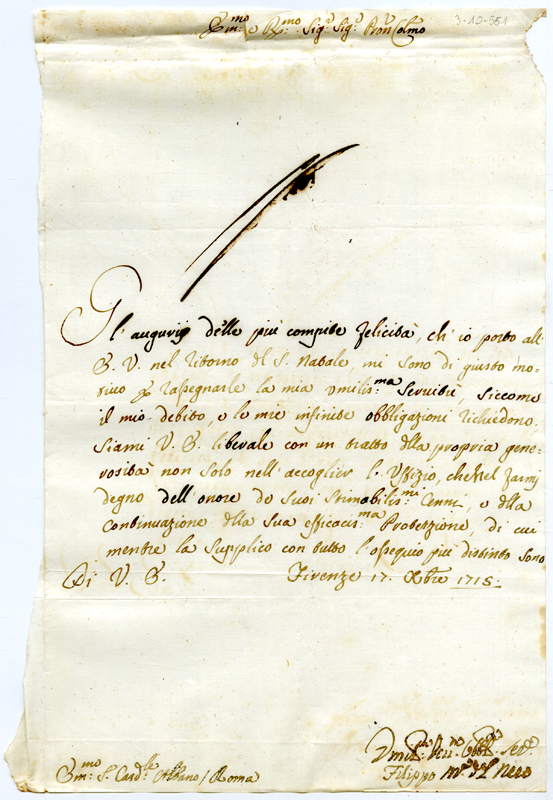 3-10-551
Em:mo e R:mo Sig:r Sig:r Pron Colmo
Gl'augurij delle più compite felicità, ch'io porto all'
E. V. nel ritorno del S. Natale, mi sono di giusto mo-
tivo per rasegnarle la mia umilis:ma servitù, siccome
il mio debito, e le mie infinite obbligazioni richiedono.
Siami V. E. liberale con un tratto della propria gene-
rosità non solo nell'accoglier l'Uffizio, che nel farmi
degno dell'onore de suoi stimabilis:mi Cenni, e della
continuazione della sua efficacis:ma Protezzione, di cui
mentre la supplico con tutto l'ossequio più distinto sono
Di V. E. Firenze 17. Xbre 1715.
Umil:mo Dev:mo Obbl:mo Ser:re
Filippo M:a del Nero
Em:mo S. Card:le Albano / Roma